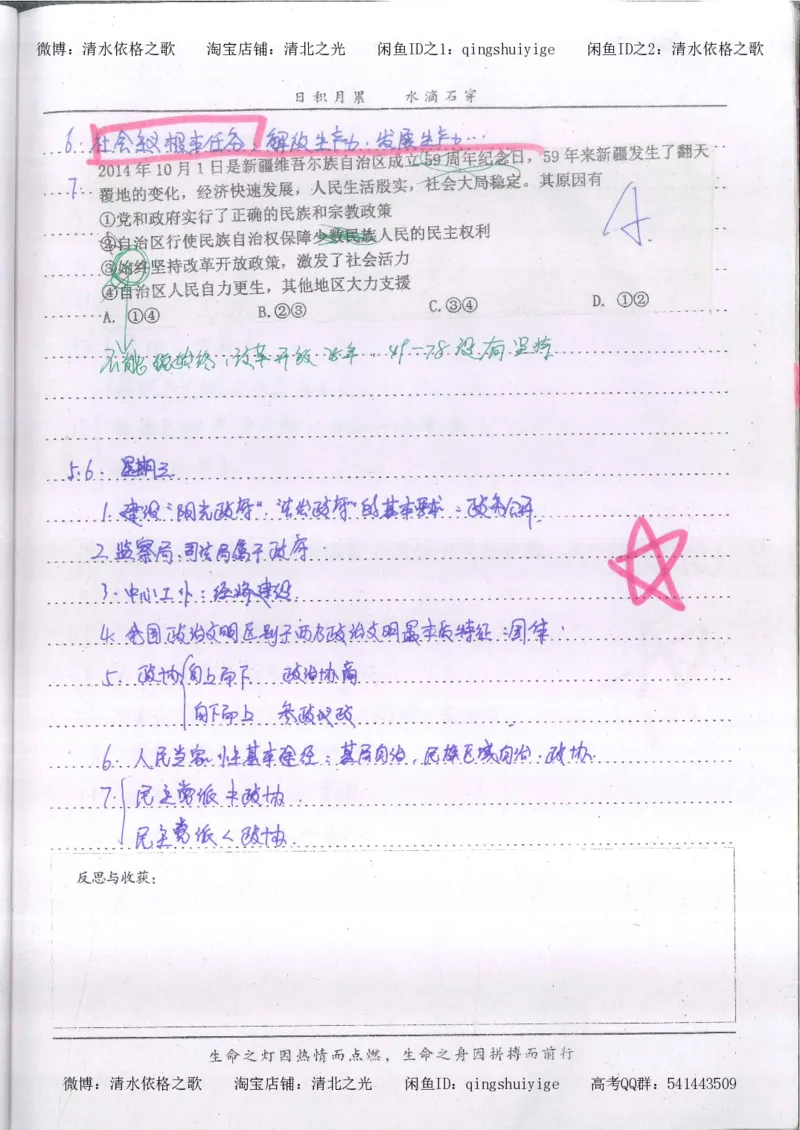 微博：清水依格之歌 淘宝店铺：清北之光 闲鱼ID之1：qingshuiyige 闲鱼ID之2：清水依格之歌
日积月累 水滴石穿
6. 社会主义根本任务：解放生产力，发展生产力…
7. 2014年10月1日是新疆维吾尔族自治区成立59周年纪念日，59年来新疆发生了翻天
覆地的变化，经济快速发展，人民生活殷实，社会大局稳定。其原因有
①党和政府实行了正确的民族和宗教政策
②自治区行使民族自治权保障少数民族人民的民主权利
③始终坚持改革开放政策，激发了社会活力
④自治区人民自力更生，其他地区大力支援
A. ①④ B.②③ C.③④ D. ①②
A.
不能说始终，改革开放 49-78没有坚持
5.6. 星期三
1. 建设"阳光政府""法治政府"的基本要求：政务公开.
2. 监察局、司法局属于政府
3. 中心工作：经济建设.
4. 我国政治文明区别于西方政治文明最本质特征：国体.
5. 政协 自上而下 政治协商
自下而上 参政议政
6. 人民当家作主基本途径：基层自治，民族区域自治，政协.
7. 民主党派≠政协
民主党派<政协.
反思与收获：
生命之灯因热情而点燃，生命之舟因拼搏而前行
微博：清水依格之歌 淘宝店铺：清北之光 闲鱼ID：qingshuiyige 高考QQ群：541443509